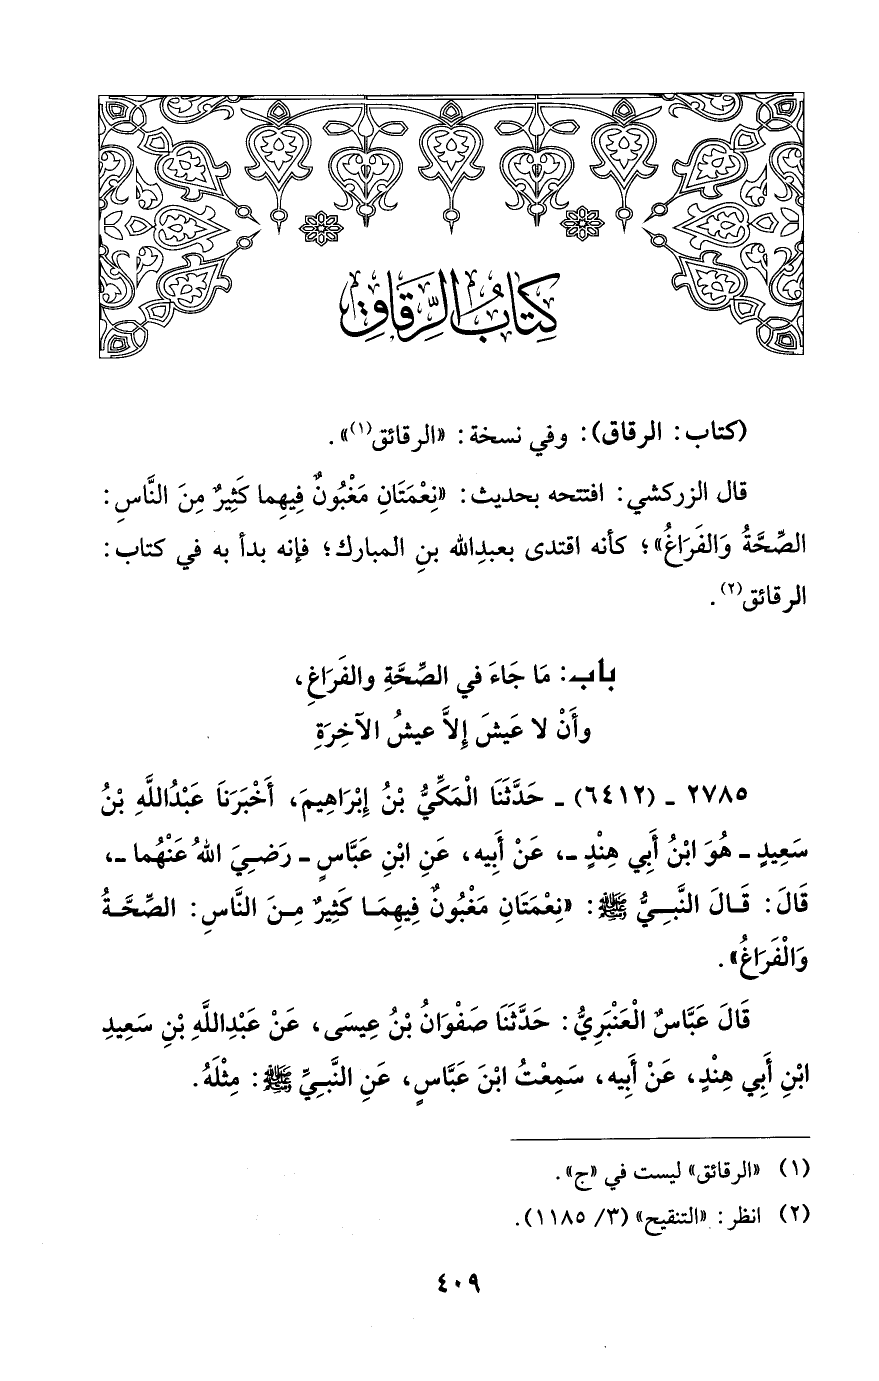 كِتَابُ الرِّقَاقِ
(كتاب: الرقاق): وفي نسخة: «الرقائق(١)».
قال الزركشي: افتتحه بحديث: «نِعْمَتَانِ مَغْبُونٌ فِيهِما كَثِيرٌ مِنَ النَّاسِ:
الصِّحَّةُ وَالفَرَاغُ»؛ كأنه اقتدى بعبدِالله بنِ المبارك؛ فإنه بدأ به في كتاب:
الرقائق(٢).
باب: مَا جَاءَ في الصِّحَّةِ والفَرَاغِ،
وأَنْ لا عَيشَ إِلاَّ عيشُ الآخِرَةِ
٢٧٨٥ ـ (٦٤١٢) ـ حَدَّثَنَا الْمَكِّيُّ بْنُ إِبْرَاهِيمَ، أَخْبَرَنَا عَبْدُاللَّهِ بْنُ
سَعِيدٍ ـ هُوَ ابْنُ أَبِي هِنْدٍ ـ، عَنْ أَبِيه، عَنِ ابْنِ عَبَّاسٍ ـ رَضِيَ اللهُ عَنْهُما ـ،
قَالَ: قَالَ النَّبِيُّ ﷺ: «نِعْمَتَانِ مَغْبُونٌ فِيهِمَا كَثِيرٌ مِنَ النَّاسِ: الصِّحَّةُ
وَالْفَرَاغُ».
قَالَ عَبَّاسٌ الْعَنْبَرِيُّ: حَدَّثَنَا صَفْوَانُ بْنُ عِيسَى، عَنْ عَبْدِاللَّهِ بْنِ سَعِيدِ
ابْنِ أَبِي هِنْدٍ، عَنْ أَبِيه، سَمِعْتُ ابْنَ عَبَّاسٍ، عَنِ النَّبِيِّ ﷺ: مِثْلَهُ.
(١) «الرقائق» ليست في «ج».
(٢) انظر: «التنقيح» (٣/ ١١٨٥).
٤٠٩